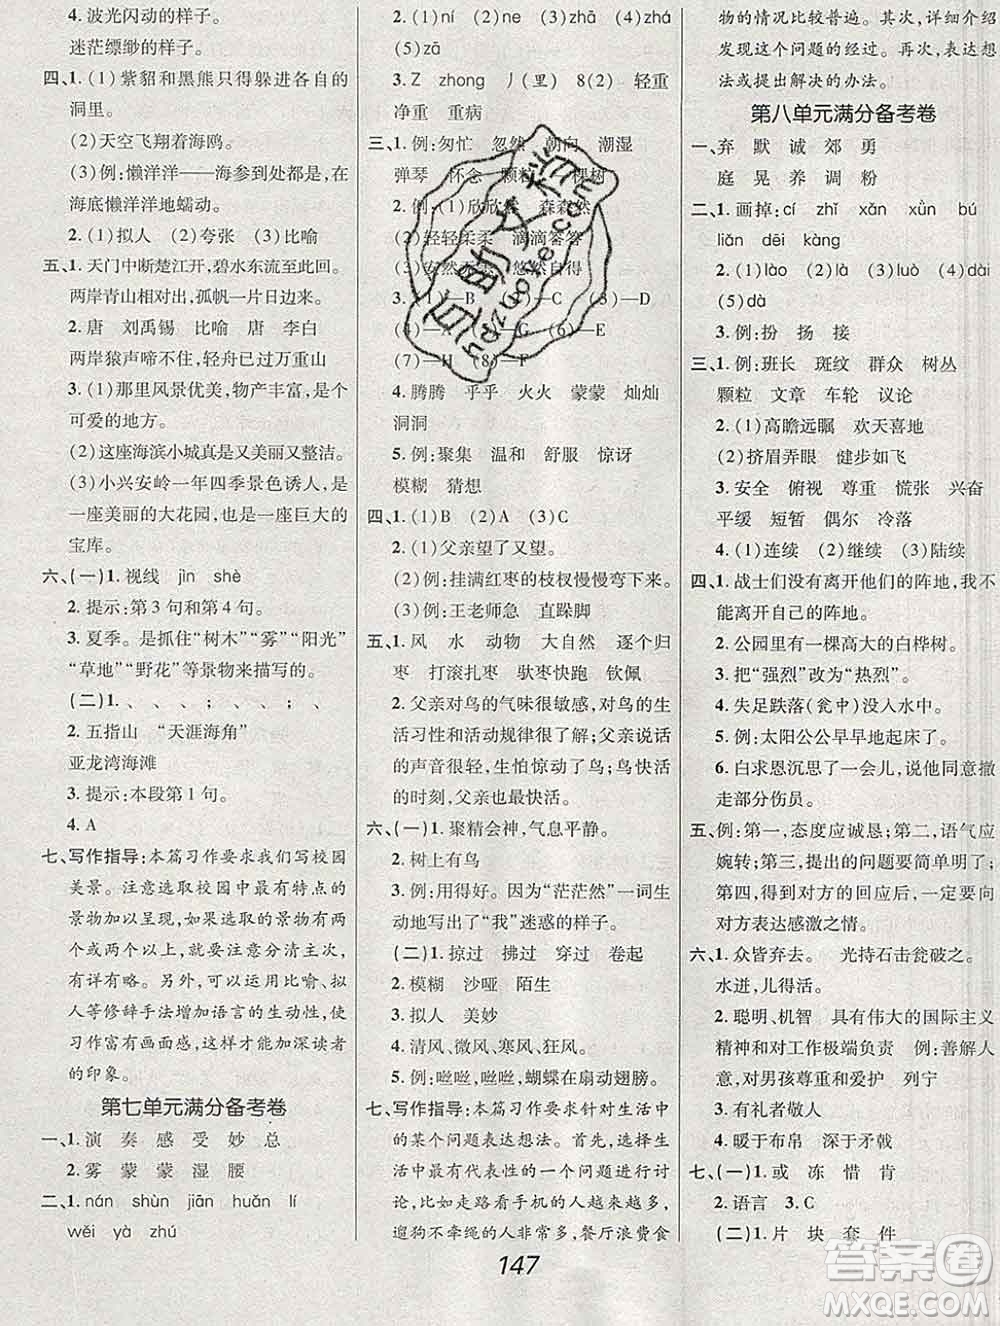 4. 波光闪动的样子。
迷茫缥缈的样子。
四、(1)紫貂和黑熊只得躲进各自的
洞里。
(2)天空飞翔着海鸥。
(3)示例:懒洋洋——海参到处都是,在
海底懒洋洋地蠕动。
2. (1)拟人 (2)夸张 (3)比喻
五、1. 天门中断楚江开,碧水东流至此回。
两岸青山相对出,孤帆一片日边来。
1. 唐 刘禹锡 比喻 唐 李白
两岸猿声啼不住,轻舟已过万重山
3. (1)那里风景优美,物产丰富,是个
可爱的地方。
(2)这座海滨小城真是又美丽又整洁。
(3)小兴安岭一年四季景色诱人,是
一座美丽的大花园,也是一座巨大的
宝库。
六、(一)1. 视线 jìn shè
2. 提示:第3句和第4句。
3. 夏季。是抓住“树木”“雾”“阳光”
“草地”“野花”等景物来描写的。
(二)1. 、 、 、 、 ; 、 ; 、
2. 五指山 “天涯海角”
亚龙湾海滩
3. 提示:本段第1句。
4. A
七、写作指导:本篇习作要求我们写校园
美景。注意选取校园中最有特点的
景物加以呈现,如果选取的景物有两
个或两个以上,就要注意分清主次,
有详有略。另外,可以运用比喻、拟
人等修辞手法增加语言的生动性,使
习作富有画面感,这样才能加深读者
的印象。
第七单元满分备考卷
一、1. 演 奏 感 受 妙 总
2. 雾 蒙 蒙 湿 腰
二、1. nán shùn jiān huǎn lí
wěi yà zhú
2. (1)ní (2)ne (3)zhā (4)zhá
(5)zā
3. Z zhong 丿(里) 8(2) 轻重
净重 重病
三、1. 例:匆忙 忽然 朝向 潮湿
弹琴 怀念 颗粒 棵树
2. (1)欣欣然 森森然
(2)轻轻柔柔 滴滴答答
(3)安然 自得
3. (1)—B (2)—C (3)—D
(4)—A —G (6)—E
(7)—H (8)—F
4. 腾腾 乎乎 火火 蒙蒙 灿灿
洞洞
5. 例:聚集 温和 舒服 惊讶
模糊 猜想
四、1. (1)B (2)A (3)C
2. (1)父亲望了又望。
(2)例:挂满红枣的枝杈慢慢弯下来。
(3)例:王老师急 直跺脚
五、1. 风 水 动物 大自然 逐个归
枣 打滚扎枣 驮枣快跑 钦佩
2. 父亲对鸟的气味很敏感,对鸟的生
活习性和活动规律很了解;父亲说话
的声音很轻,生怕惊动了鸟;鸟最快活
的时刻,父亲也最快活。
六、(一)1. 聚精会神,气息平静。
2. 树上有鸟
3. 例:用得好。因为“茫茫然”一词生
动地写出了“我”迷惑的样子。
(二)1. 掠过 拂过 穿过 卷起
2. 模糊 沙哑 陌生
3. 拟人 美妙
4. 清风、微风、寒风、狂风。
5. 例:咝咝,咝咝,蝴蝶在扇动翅膀。
七、写作指导:本篇习作要求针对生活中
的某个问题表达想法。首先,选取生
活中具有代表性的一个问题进行讨
论,比如走路看手机的人越来越多,
遛狗不牵绳的人非常多,餐厅浪费食
物的情况比较普遍。其次,详细介绍
发现这个问题的经过。再次,表达想
法或提出解决的办法。
第八单元满分备考卷
一、弃 默 诚 郊 勇
庭 晃 养 调 粉
二、1. 画掉:cí zhǐ xǎn xùn bú
liǎn dēi kàng
2. (1)lào (2)là (3)luò (4)dài
(5)dà
3. 例:扮 扬 接
三、1. 例:班长 斑纹 群众 树丛
颗粒 文章 车轮 议论
2. (1)高瞻远瞩 欢天喜地
(2)挤眉弄眼 健步如飞
3. 安全 俯视 尊重 慌张 兴奋
平缓 短暂 偶尔 冷落
4. (1)连续 (2)继续 (3)陆续
四、1. 战士们没有离开他们的阵地,我不
能离开自己的阵地。
2. 公园里有一棵高大的白桦树。
3. 把“强烈”改为“热烈”。
4. 失足跌落(瓮中)没入水中。
5. 例:太阳公公早早地起床了。
6. 白求恩沉思了一会儿,说他同意撤
走部分伤员。
五、例:第一,态度应诚恳;第二,语气应
婉转;第三,提出的问题要简单明了;
第四,得到对方的回应后,一定要向
对方表达感激之情。
六、1. 众皆弃去。 光持石击瓮破之。
水迸,儿得活。
2. 聪明、机智 具有伟大的国际主义
精神和对工作极端负责 例:善解人
意,对男孩尊重和爱护 列宁
3. 有礼者敬人
4. 暖于布帛 深于矛戟
七、(一)1. 或 冻 惜 肯
2. 语言 3. C
(二)1. 片 块 套 件
147
答案圈
MXQE.COM